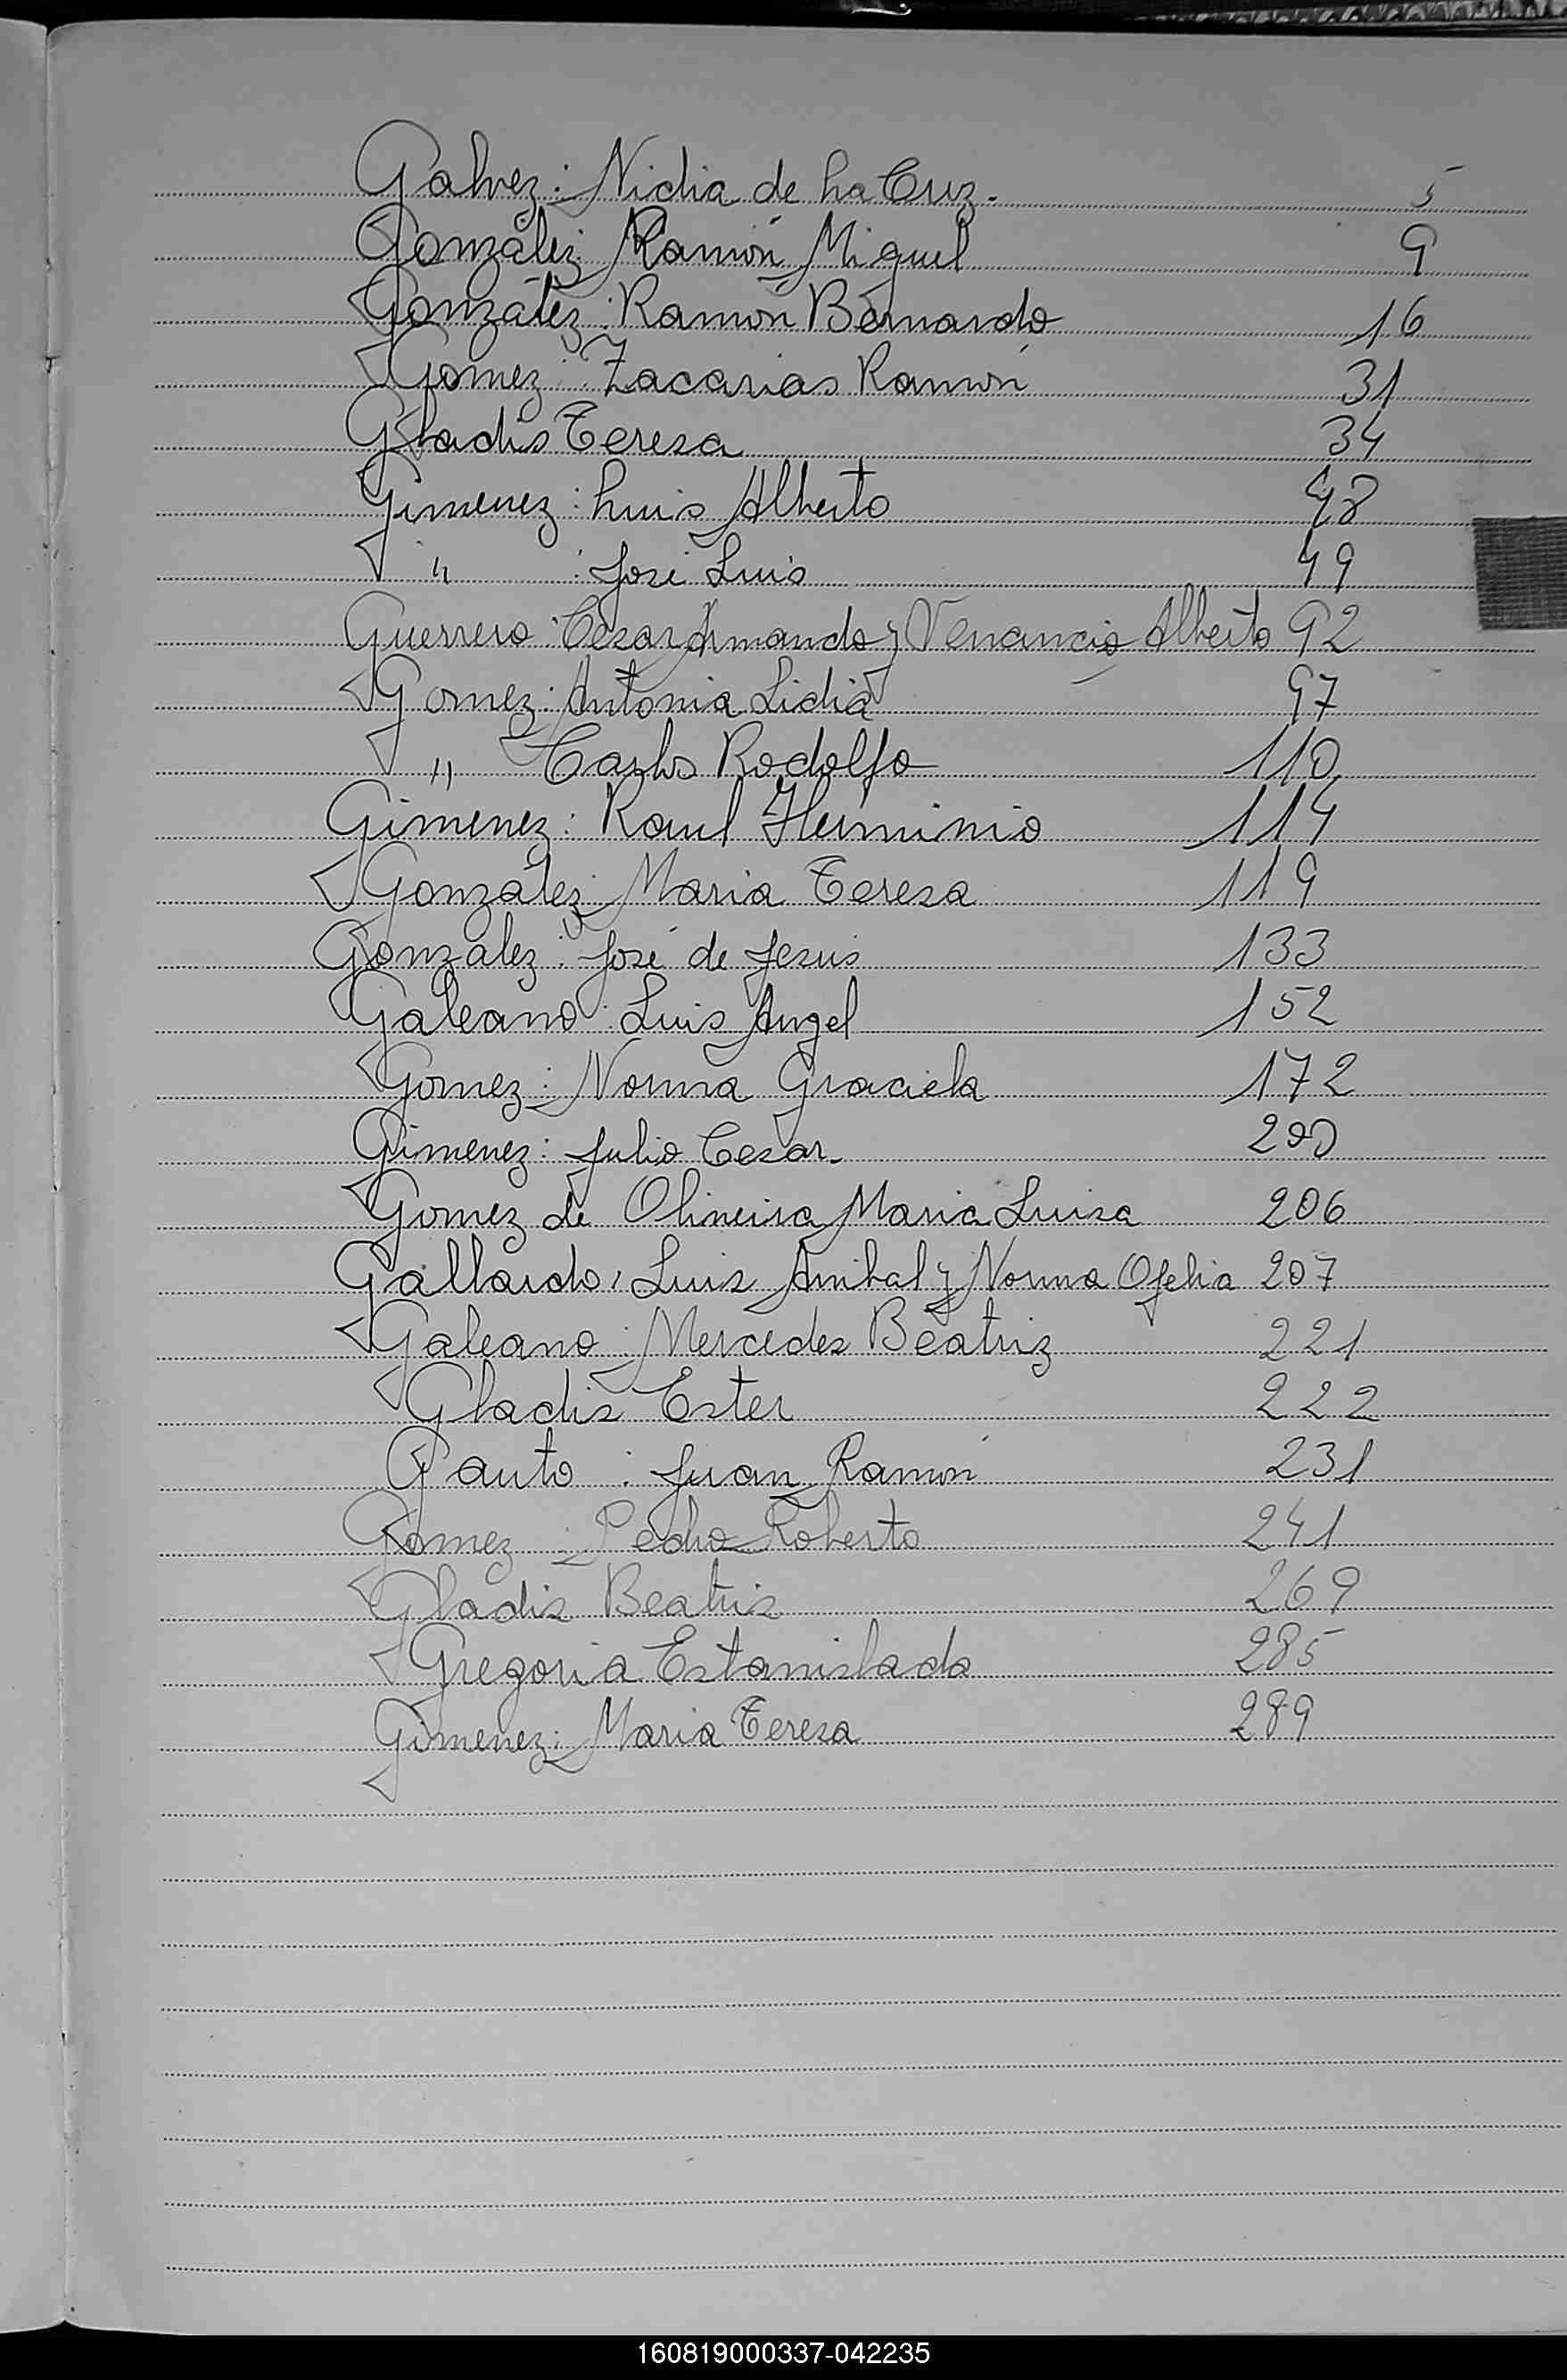 Galvez: Nidia de La Cruz. 5
González: Ramón Miguel 9
González: Ramón Bernardo 16
Gomez: Zacarias Ramón 31
Gladis Teresa 34
Gimenez: Luis Alberto 48
" : José Luis 49
Guerrero: Cesar Armando y Venancio Alberto 92
Gomez: Antonia Lidia 97
" Carlos Rodolfo 110
Gimenez: Raul Herminio 114
González: Maria Teresa 119
Gonzalez: José de Jesus 133
Galeano: Luis Angel 152
Gomez: Norma Graciela 172
Gimenez: Julio Cesar. 200
Gomez de Olineira Maria Luisa 206
Gallardo, Luis Anibal y Norma Ofelia 207
Galeano: Mercedes Beatriz 221
Gladis Ester 222
Gauto : Juan Ramón 231
Gomez : Pedro Roberto 241
Gladis Beatris 269
Gregoria Estanislada 285
Gimenez: Maria Teresa 289
160819000337-042235